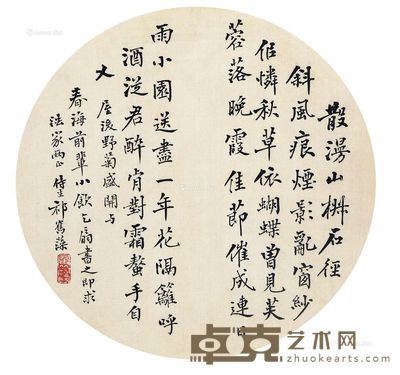 散漫山樊石径
斜風痕煙影亂窗紗
但憐秋草依蝴蝶曾見芙
蓉落晚霞佳節催成連日
雨小園送盡一年花隔籬呼
酒從君醉肯對霜螯手自
大
屋後野菊盛開与
春海前輩小飲乞扇書之即求
法家兩正 侍生祁寯藻
卓克艺术网
www.zhuokearts.com